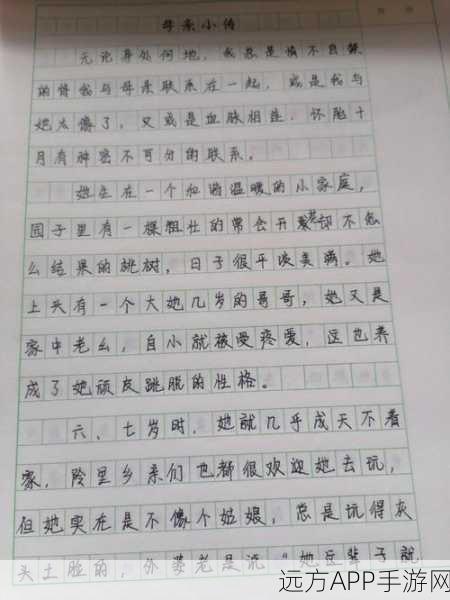 母亲小传
无论身处何地，我总是情不自禁
的将我与母亲联系在一起，或是我与
她太像了，又或是血脉相连，怀胎十
月有神密不可分的联系。
她生在一个和谐温暖的小家庭，
园子里有一棵粗壮的常会开花却不怎
么结果的桃树，日子很平淡美满。她
上头有一个大她几岁的哥哥，她又是
家中老幺，自小就被受疼爱，这也养
成了她顽皮跳脱的性格。
六、七岁时，她就几乎成天不着
家，邻里乡亲们也都很欢迎她去玩，
但她实在是不像个姑娘，总是玩得灰
头土脸的，外婆老是说"她这辈子就
远方APP手游网